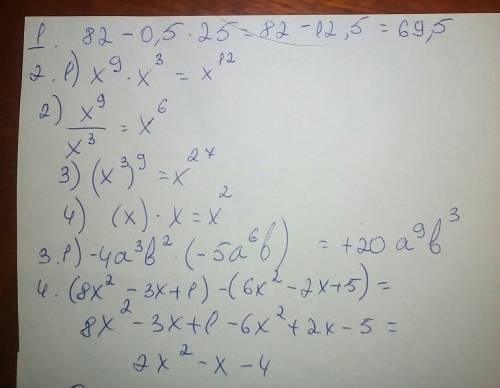 1. 82 - 0,5 · 25 = 82 - 12,5 = 69,5
2. 1) x⁹ · x³ = x¹²
2) x⁹/x³ = x⁶
3) (x³)⁹ = x²⁷
4) (x) · x = x²
3. 1) -4a³b² · (-5a⁶b) = +20a⁹b³
4. (8x² - 3x + 1) - (6x² - 2x + 5) =
8x² - 3x + 1 - 6x² + 2x - 5 =
2x² - x - 4